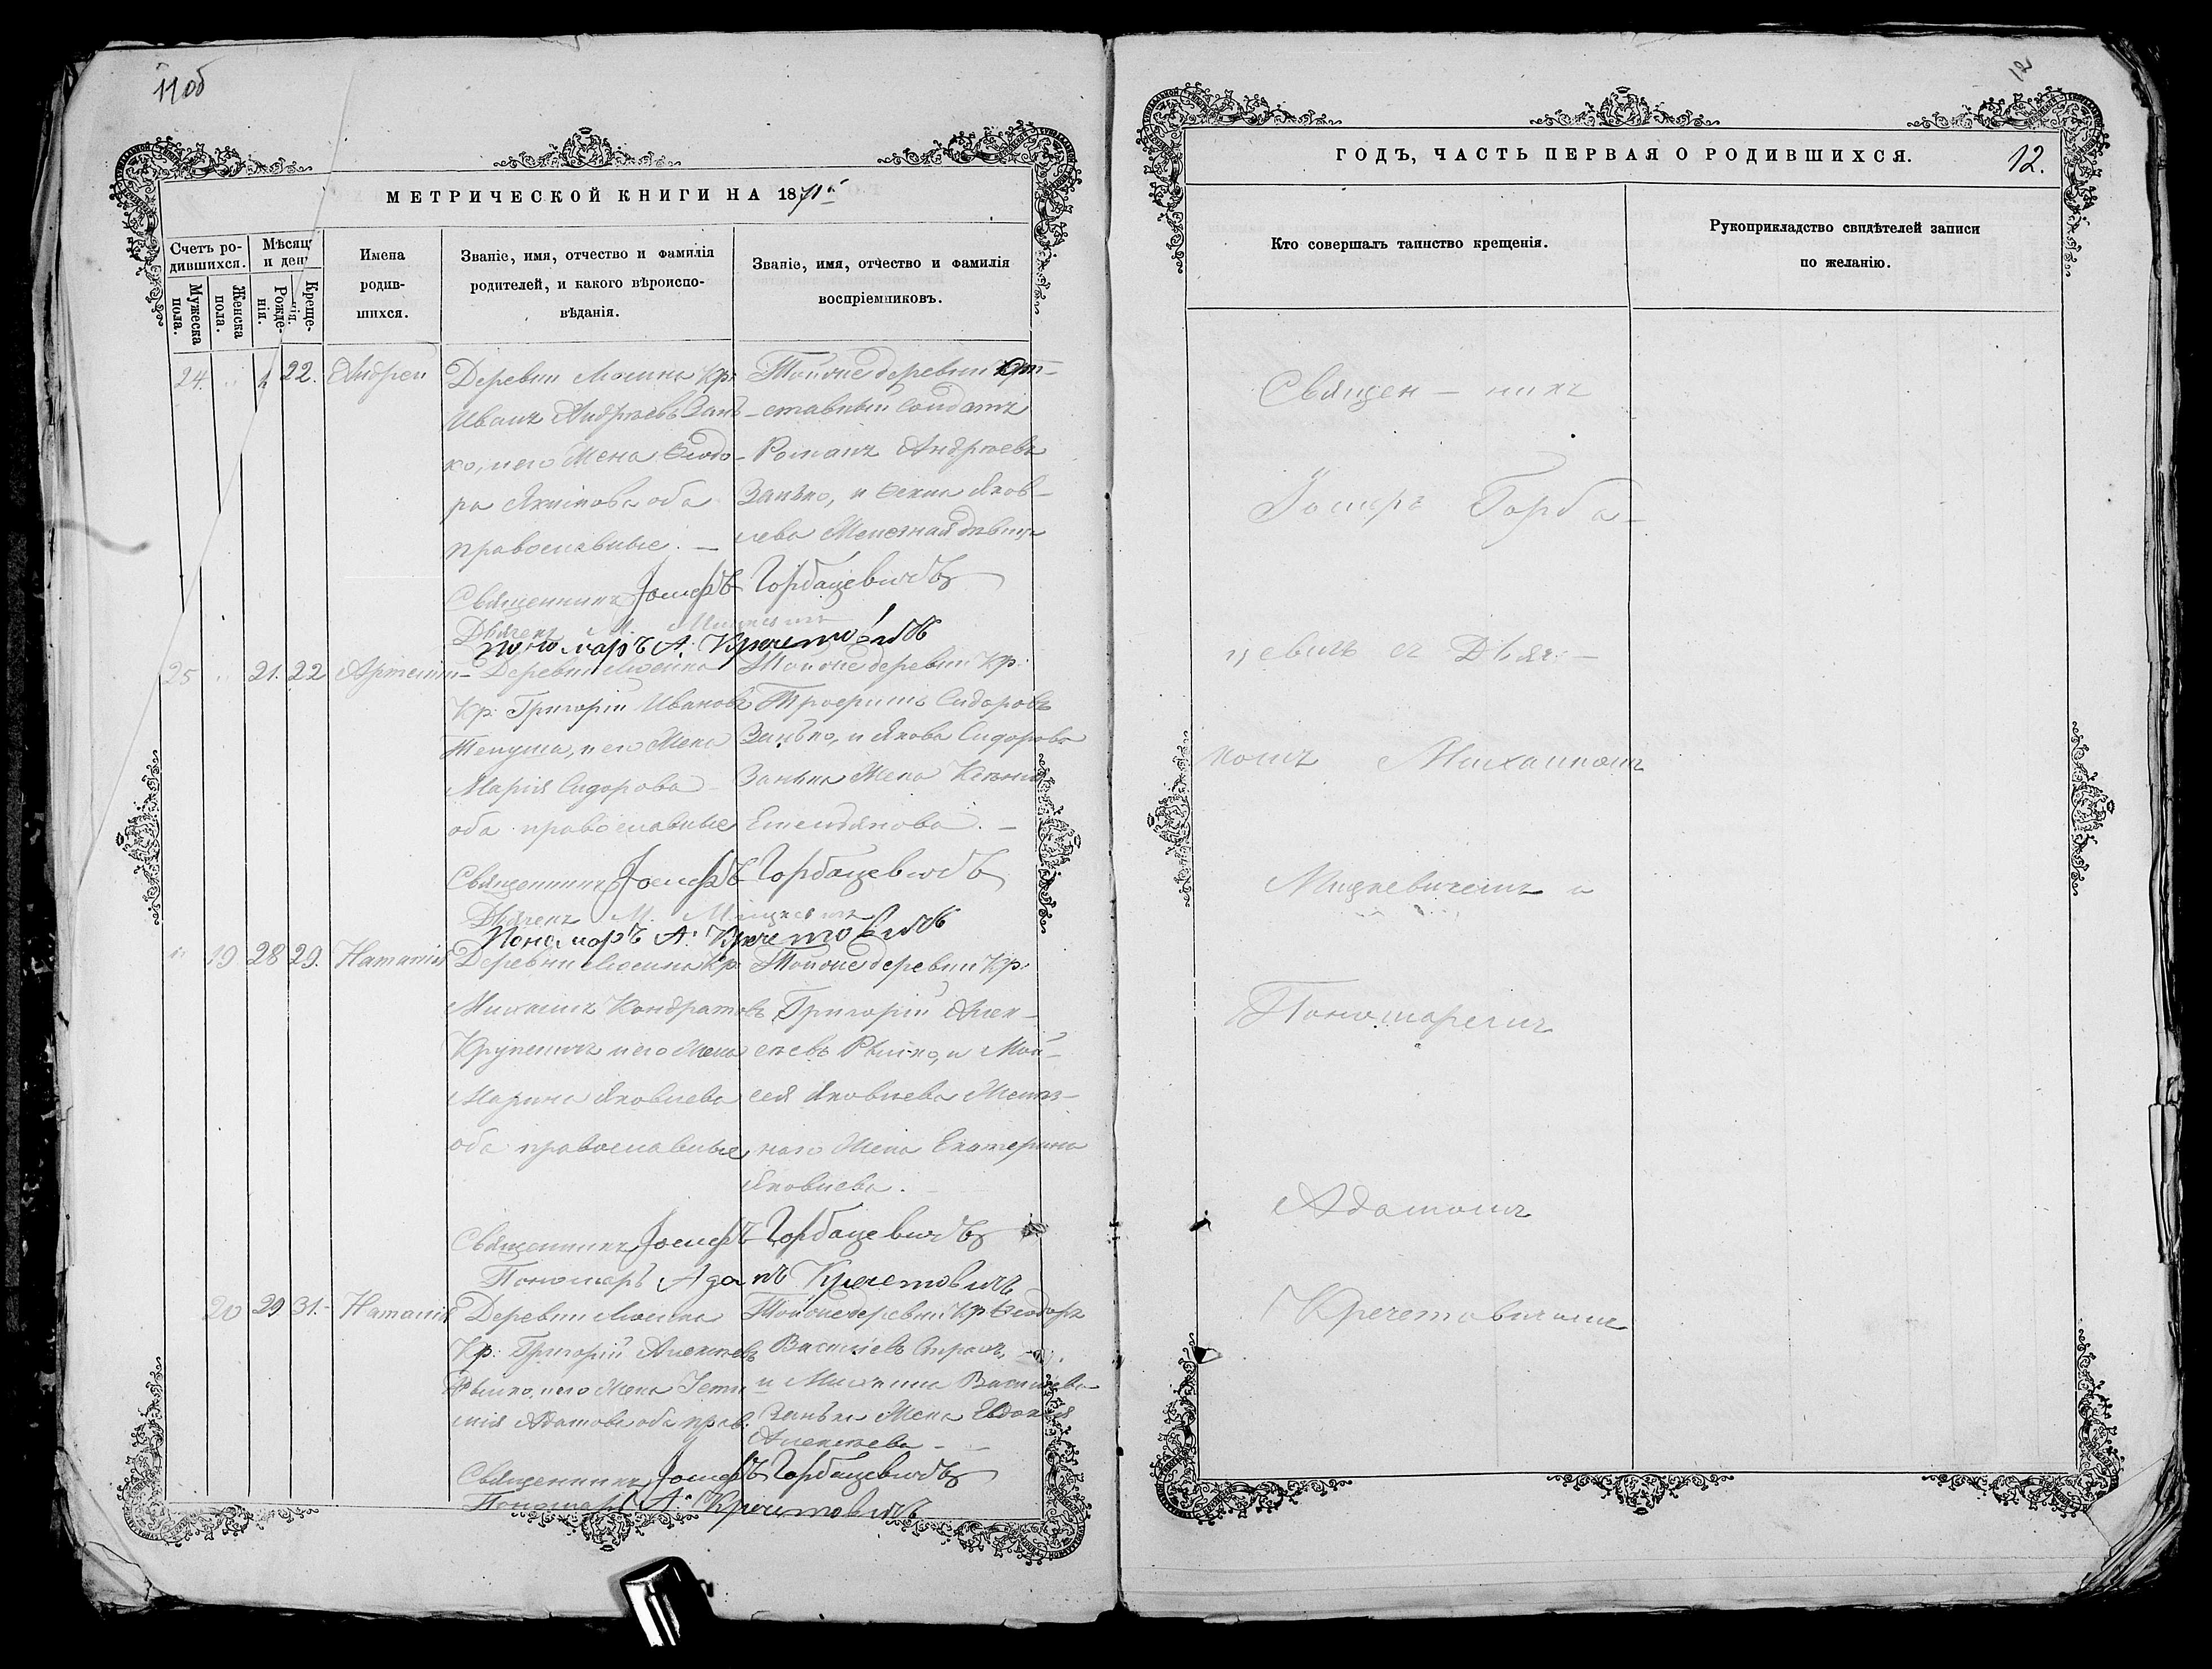 11об
МЕТРИЧЕСКОЙ КНИГИ НА 1871й
Счетъ ро-
дившихся.
Мѣсяцъ
и день
Мужеска
пола.
Женска
пола.
Рожде-
нія.
Креще-
нія.
Имена
родив-
шихся.
Званіе, имя, отчество и фамилія
родителей, и какого вѣроиспо-
вѣданія.
Званіе, имя, отчество и фамилія
воспріемниковъ.
24. 22. Андрей
Деревни Люсина Кр.
Иванъ Андреевъ Зань-
ко, и его жена Ѳеодо-
ра Якимова оба
православные. —
Тойже деревни От-
ставный солдатъ
Романъ Андреевъ
Занько, и Яков-
лева девица
Священникъ Іосифъ Горбацевичъ
Дьячекъ М. Мицкевичъ
Пономаръ А. Кречетовичъ
25 21. 22 Артемій
Деревни Люсина
Кр. Григорій Ивановъ
и его жена
Марія Сидорова
оба православные
Тойже деревни Кр.
Трофимъ Сидоровъ
Занько, и Якова Сидорова
Занька жена Ксенія
Емельянова. —
Священникъ Іосифъ Горбацевичъ
Дьячекъ М. Мицкевичъ
Пономаръ А. Кречетовичъ
19 28 29. Наталія
Деревни Люсина Кр.
Михаилъ Кондратовъ
и его жена
Марина Яковлева
оба православные
Тойже деревни Кр.
Григорій Алек-
сеевъ и Мой-
сея Яковлева
наго жена Екатерина
Яковлева.
Священникъ Іосифъ Горбацевичъ
Пономаръ Адамъ Кречетовичъ
20 29 31. Наталія
Деревни Люсина
Кр. Григорій Алексеевъ
и его жена
Адамова оба прав.
Тойже деревни Кр. Ѳеодоръ
Василіевъ
и Василіева
Занька жена Евдокія
Алексеева —
Священникъ Іосифъ Горбацевичъ
Пономаръ А. Кречетовичъ
12
ГОДЪ, ЧАСТЬ ПЕРВАЯ О РОДИВШИХСЯ.
12.
Кто совершалъ таинство крещенія.
Рукоприкладство свидѣтелей записи
по желанію.
Священ — никъ
Іосифъ Горба-
цевичъ съ Дьяч-
комъ Михаиломъ
Мицкевичемъ и
Пономаремъ
Адамомъ
Кречетовичемъ